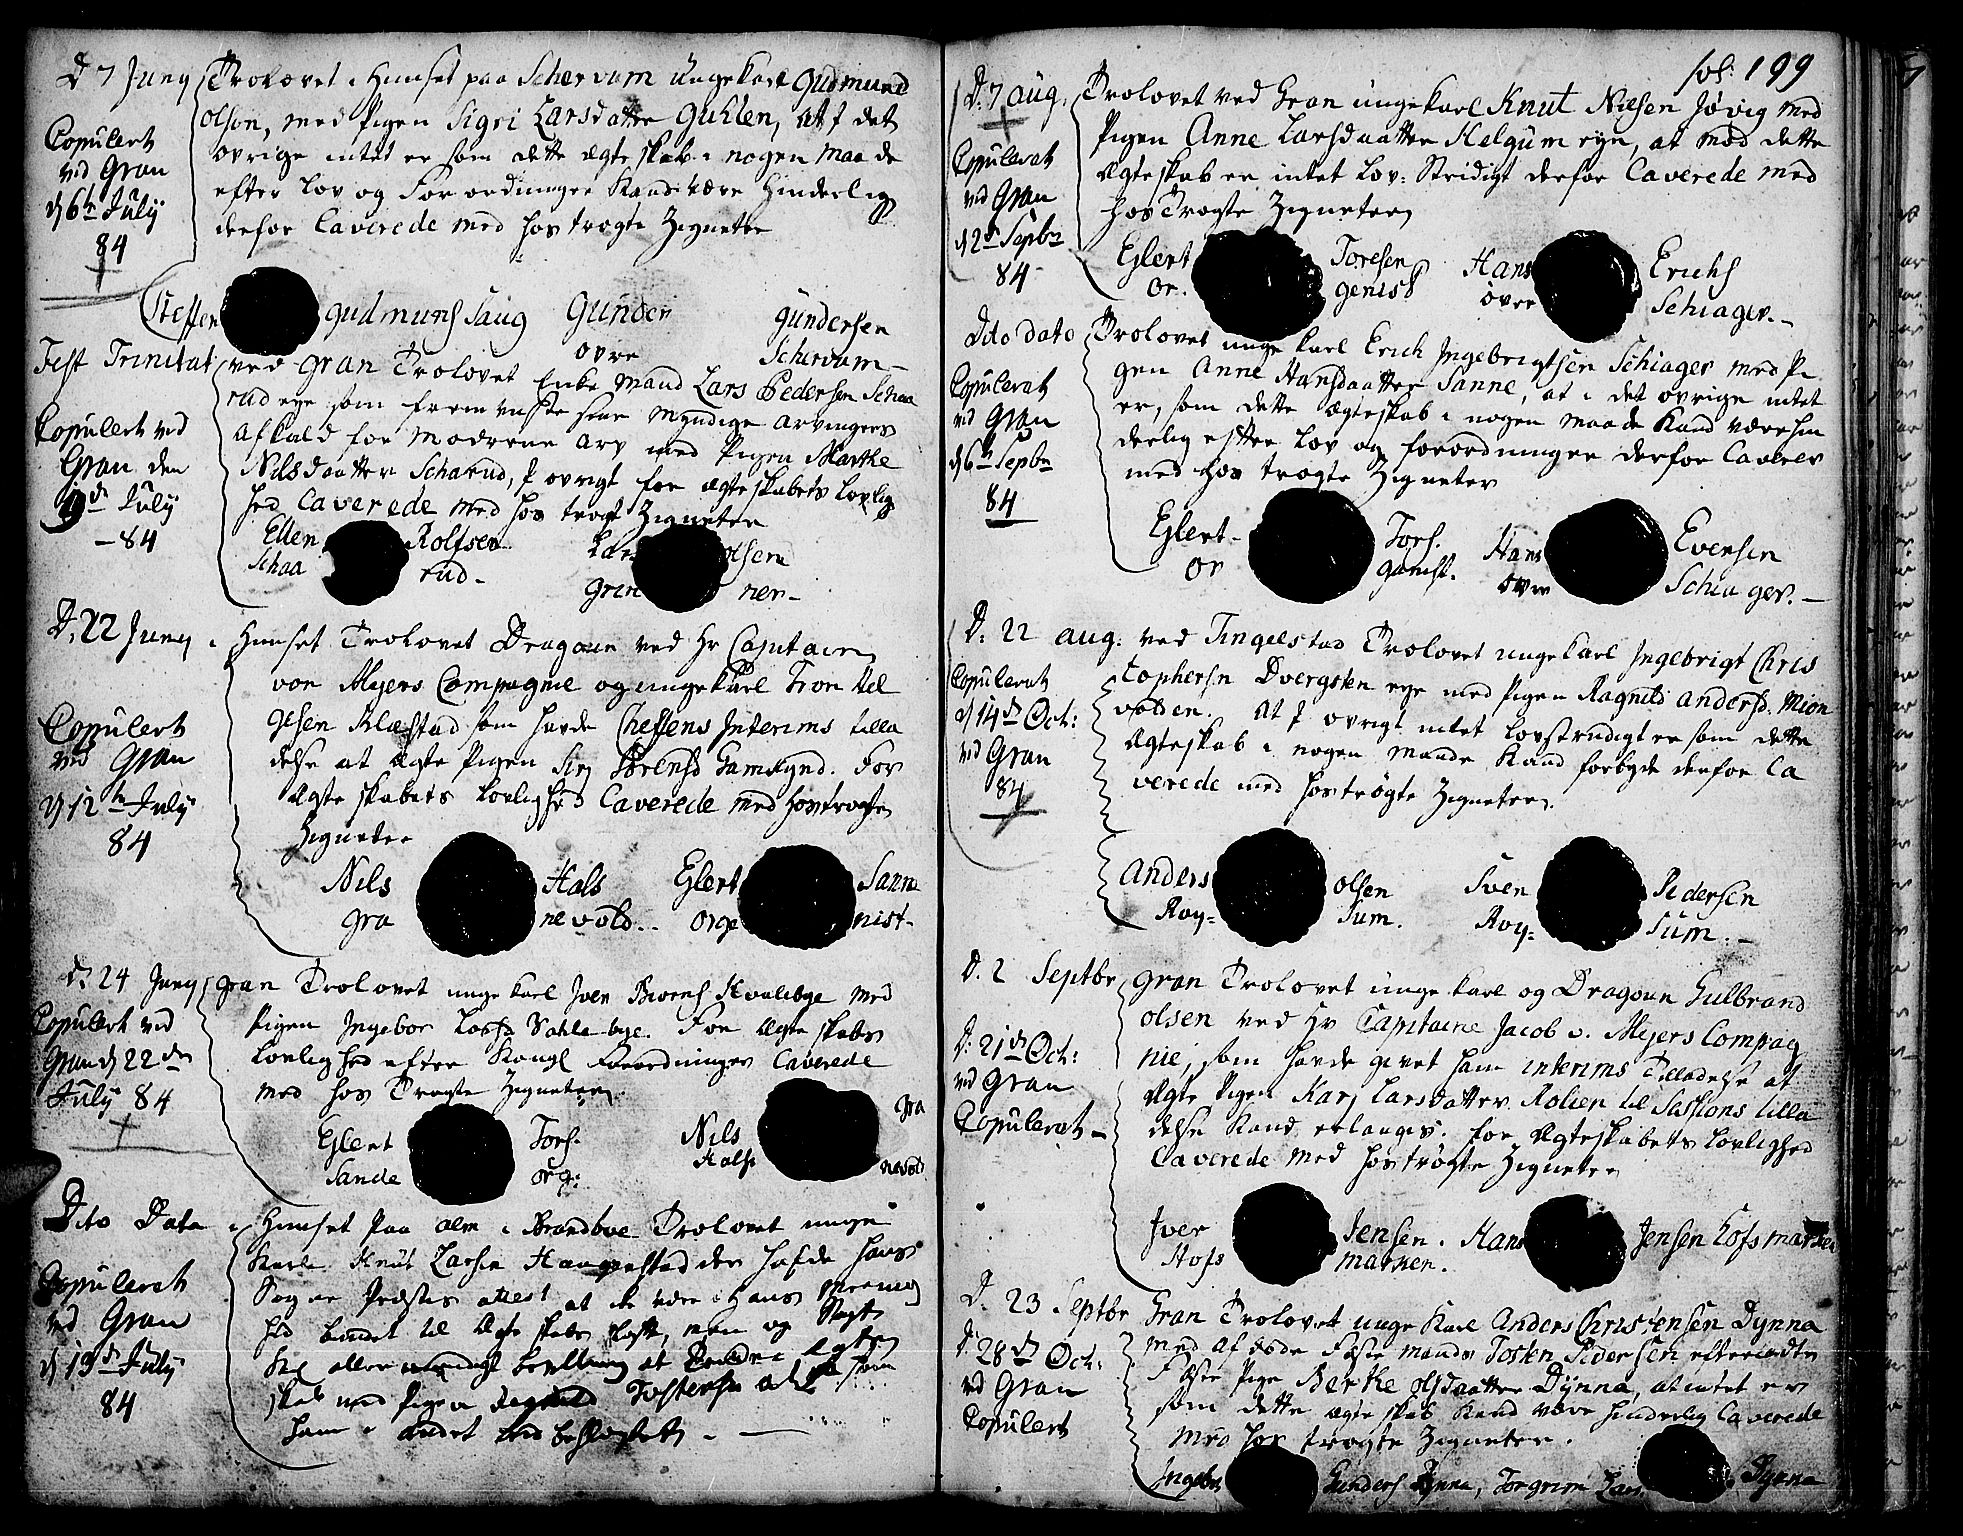 D 7 Juny Trolovet i Huuset paa Schervum ungekarl Gudmund
olson, med Pigen Sigri Larsdatter Guhlen, at det
ovrige intet er som dette ægteskab i nogen maade
efter Lov og Forordninger Kand være Hinderlig
derfor Caverede med hostrogte Zigneter
Copulert
ved Gran
d 6te July
84
Steffen Gudmuns Saug Gunder Gundersen
ovre Schervum
Fest Trinitat ved Gran Trolovet Enke Mand Lars Pedersen Schaa
rud eye som fremviste sine Myndige arvingers
afkald for Moderne arv med Pigen Marthe
Nilsdaatter Scharud, ovrigt for ægteskabets Lovlig
hed Caverede med hos trogt Zigneter
Copulert ved
Gran den
9de July
84
Ellen Rolfsen Lars olsen
Schaa rud Grin ner
D. 22 Juny i Huuset Trolovet Dragoun ved Hr Capitain
von Meyers Compagnie og ungekarl Tron Hel
gesen Klæstad som havde Cheffens Interims tilla
delse at ægte Pigen Sirj Sorensd Gamkynd. For
ægteskabets Lovlighed Caverede med hostrogte
Zigneter
Copulert
ved Gran
d 12te July
84
Nils Hals Eglert Sann
gra nevold orge nist
D. 24 Juny Gran Trolovet unge karl Iver Biorns Hvalebye med
Pigen Ingebor Larsd Vahle bye. For ægteskabets
Lovlighed efter Kongl Forordninger Caverede
med hos Trogte Zigneter
Copulert ved
Gran d 22de
July 84
Eglert Tors. Nils gra
Sande org: Hals nevold
Dito Dato i Huuset paa alm i Brandbue Trolovet unge
Karl Knut Larsen Haagenstad der hafde hans
Sogne Præstes attest at
Copulerat
ved Gran
d 13de July
84
fol: 199
D. 7 aug. Trolovet ved Gran ungekarl Knut Nilsen Jøvig med
Pigen Anne Larsdaatter Helgum eye, at mod dette
ægteskab er intet Lov: Stridigt derfor Caverede med
hos Trogte Zigneter
Copulerat
ved Gran
d 2de Septbr
84
Eglert Toresen Hans Erichs
or. genist ovre Schiager.
Dito dato Trolovet unge karl Erich Ingebrigtsen Schiager med Pi
gen Anne Hansdaatter Sanne, at i det øvrige intet
er, som dette ægteskab i nogen maade Kand være hin
derlig efter Lov og forordninger derfor Caverer
med hos trogte Zigneter
Copulerat
ved Gran
d 6te Septbr
84
Eglert Tors. Hans Evensen
or genist. ovre Schiager.
D: 22 aug: ved Tingelstad Trolovet ungekarl Ingebrigt Chris
tophersen Dvergsten eye med Pigen Ragnild andersd. Mion
volden. At ovrigt intet Lovstridigt er som dette
ægteskab i nogen maade Kand forbyde derfor Ca
verede med hostrøgte Zigneter.
Copulerat
d 14de Oct:
ved Gran
84
Anders olsen Sven Pedersen
Roy= sum. Roy= sum.
D. 2 Septbr Gran Trolovet unge karl og Dragoun Gulbrand
olsen ved Hr Capitaine Jacob v. Meyers Compag
nie, som havde givet ham interims Tilladelse at
ægte Pigen Karj Larsdatter Rolien til Sessions tilla
delse Kand erlanges. for ægteskabets Lovlighed
Caverede med hostrøgte Zigneter
D: 21de Oct:
ved Gran
Copulerat
Iver Jensen. Hans Jensen Hofsmarken
Hofs marken.
D. 23 Septbr Gran Trolovet unge karl Anders Christensen Dynna
med afdøde Fæste mands Tosten Pedersen efterladte
Fæste Pige Berthe olsdaatter Dynna, at intet er
som dette ægteskab Kand være hinderlig Caverede
med hos trogte Zigneter.
D: 28de Oct:
ved Gran
Copulert
Ingebr Gunders Dynna, Torgrim Lars Dynna